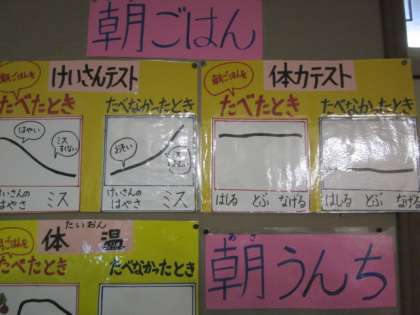 朝ごはん
朝ごはんを
けいさんテスト
たべたとき
たべなかったとき
はやい
ミス
すくない
おそい
けいさんの
はやさ
ミス
けいさんの
はやさ
ミス
朝ごはんを
体力テスト
たべたとき
たべなかったとき
はしる とぶ なげる
はしる とぶ なげる
朝ごはんを
たいおん
体温
たべたとき
たべなかったとき
あさ
朝うんち